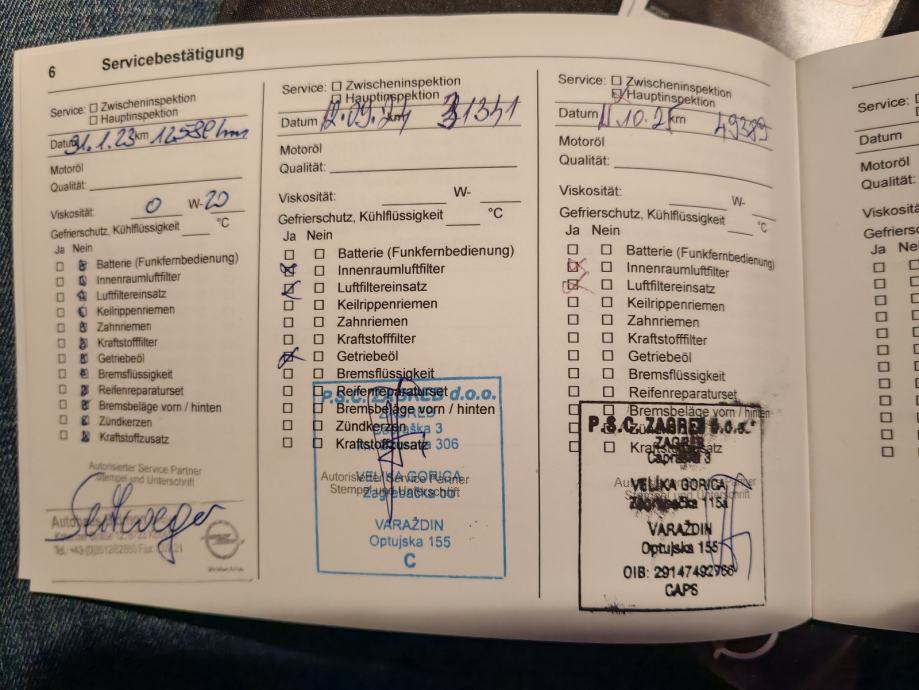 6 Servicebestätigung
Service: Zwischeninspektion
Hauptinspektion
Datum 31.1.23 km 12580 km
Motoröl
Qualität:
Viskosität: 0 W-20
Gefrierschutz, Kühlflüssigkeit °C
Ja Nein
Batterie (Funkfernbedienung)
Innenraumluftfilter
Luftfiltereinsatz
Keilrippenriemen
Zahnriemen
Kraftstofffilter
Getriebeöl
Bremsflüssigkeit
Reifenreparaturset
Bremsbeläge vorn / hinten
Zündkerzen
Kraftstoffzusatz
Autorisierter Service Partner
Stempel und Unterschrift
Service: Zwischeninspektion
Hauptinspektion
Datum 12.09.24 km 31341
Motoröl
Qualität:
Viskosität: W-
Gefrierschutz, Kühlflüssigkeit °C
Ja Nein
Batterie (Funkfernbedienung)
Innenraumluftfilter
Luftfiltereinsatz
Keilrippenriemen
Zahnriemen
Kraftstofffilter
Getriebeöl
Bremsflüssigkeit
Reifenreparaturset
Bremsbeläge vorn / hinten
Zündkerzen
Kraftstoffzusatz
Autorisierter Service Partner
Stempel und Unterschrift
P.S.C. ZAGREB d.o.o.
ZAGREB
Capraška 3
306
VELIKA GORICA
Zagrebačka bb
VARAŽDIN
Optujska 155
C
Service: Zwischeninspektion
Hauptinspektion
Datum 11.10.25 km 49389
Motoröl
Qualität:
Viskosität: W-
Gefrierschutz, Kühlflüssigkeit °C
Ja Nein
Batterie (Funkfernbedienung)
Innenraumluftfilter
Luftfiltereinsatz
Keilrippenriemen
Zahnriemen
Kraftstofffilter
Getriebeöl
Bremsflüssigkeit
Reifenreparaturset
Bremsbeläge vorn / hinten
Zündkerzen
Kraftstoffzusatz
Autorisierter Service Partner
Stempel und Unterschrift
P.S.C. ZAGREB d.o.o.
ZAGREB
Capraška 3
VELIKA GORICA
Zagrebačka 115a
VARAŽDIN
Optujska 155
OIB: 29147492766
CAPS
Service:
Datum
Motoröl
Qualität:
Ja